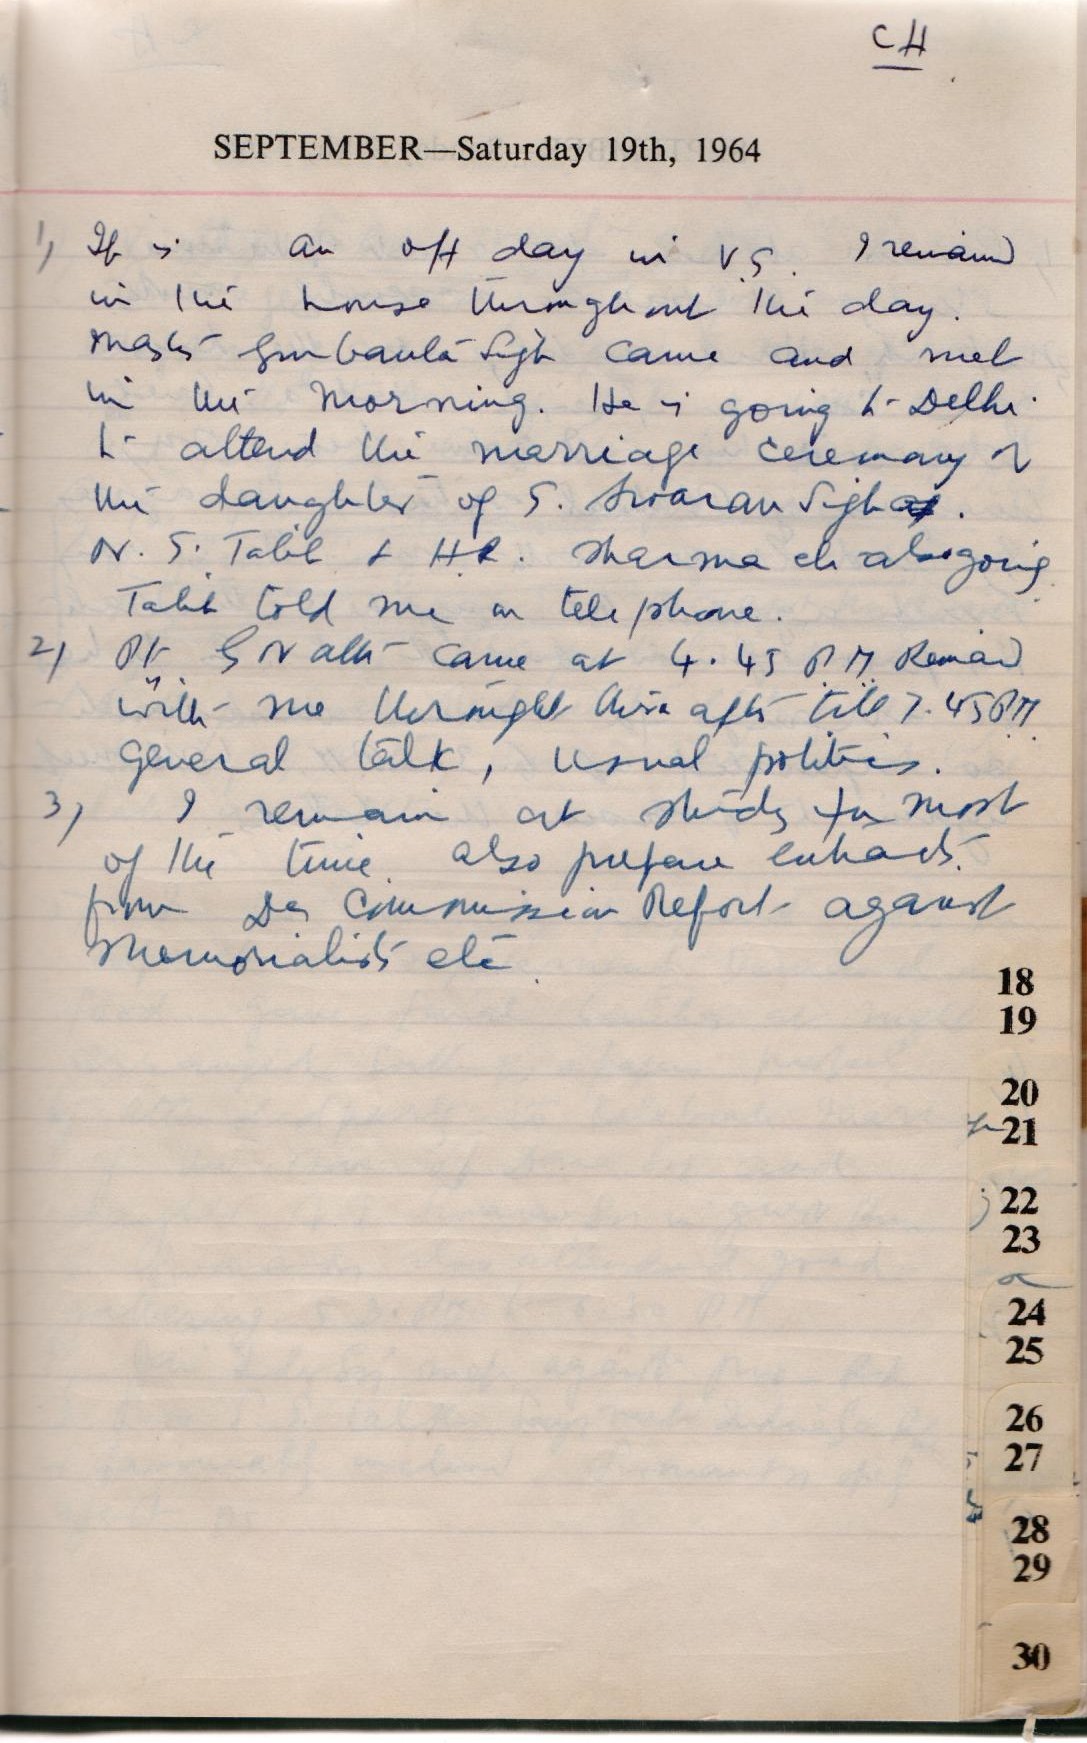 CH
SEPTEMBER—Saturday 19th, 1964
1) It is an off day in V.S. I remained
in the house throughout the day.
Master Gurbanta Singh came and met
in the morning. He is going to Delhi
to attend the marriage ceremony of
the daughter of S. Swaran Singh.
N. S. Talib & H.R. Sharma etc also going
Talib told me on telephone.
2) Pt came at 4.45 P.M. Remained
with me till 7.45 PM
general talk, usual politics.
3) I remain at study for most
of the time. also prepare extracts
from Das Commission Report against
Memorialists etc.
18
19
20
21
22
23
24
25
26
27
28
29
30